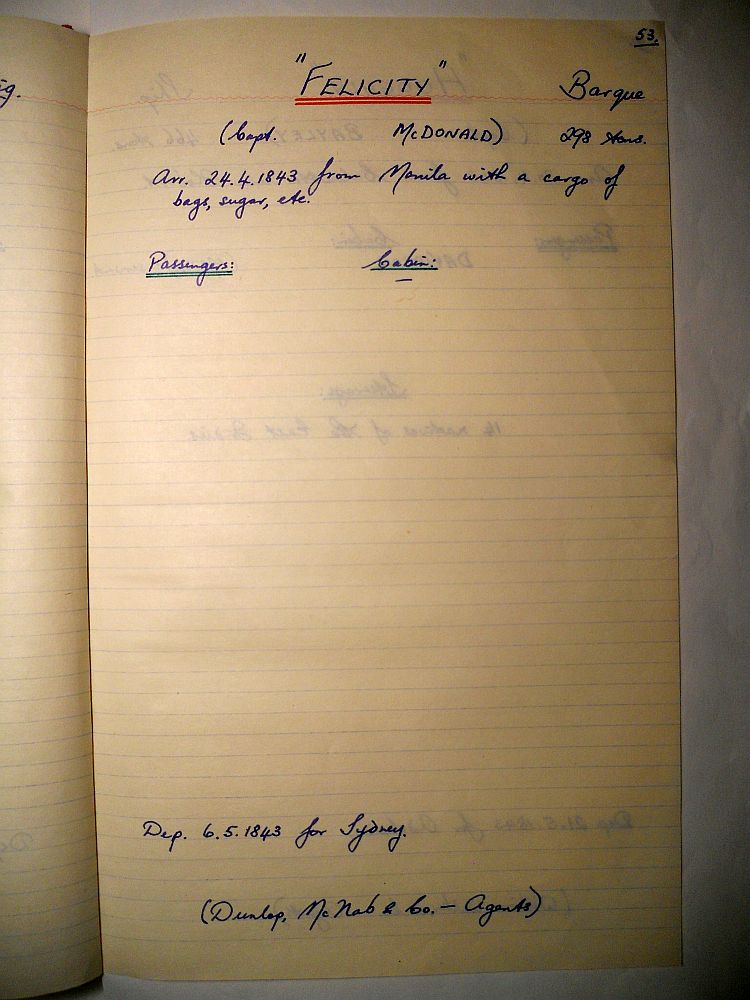 53.
"FELICITY" Barque
(Capt. McDONALD) 298 tons.
Arr. 24.4.1843 from Manila with a cargo of
bags, sugar, etc.
Passengers: Cabin:
—
Dep. 6.5.1843 for Sydney.
(Dunlop, McNab & Co. — Agents)